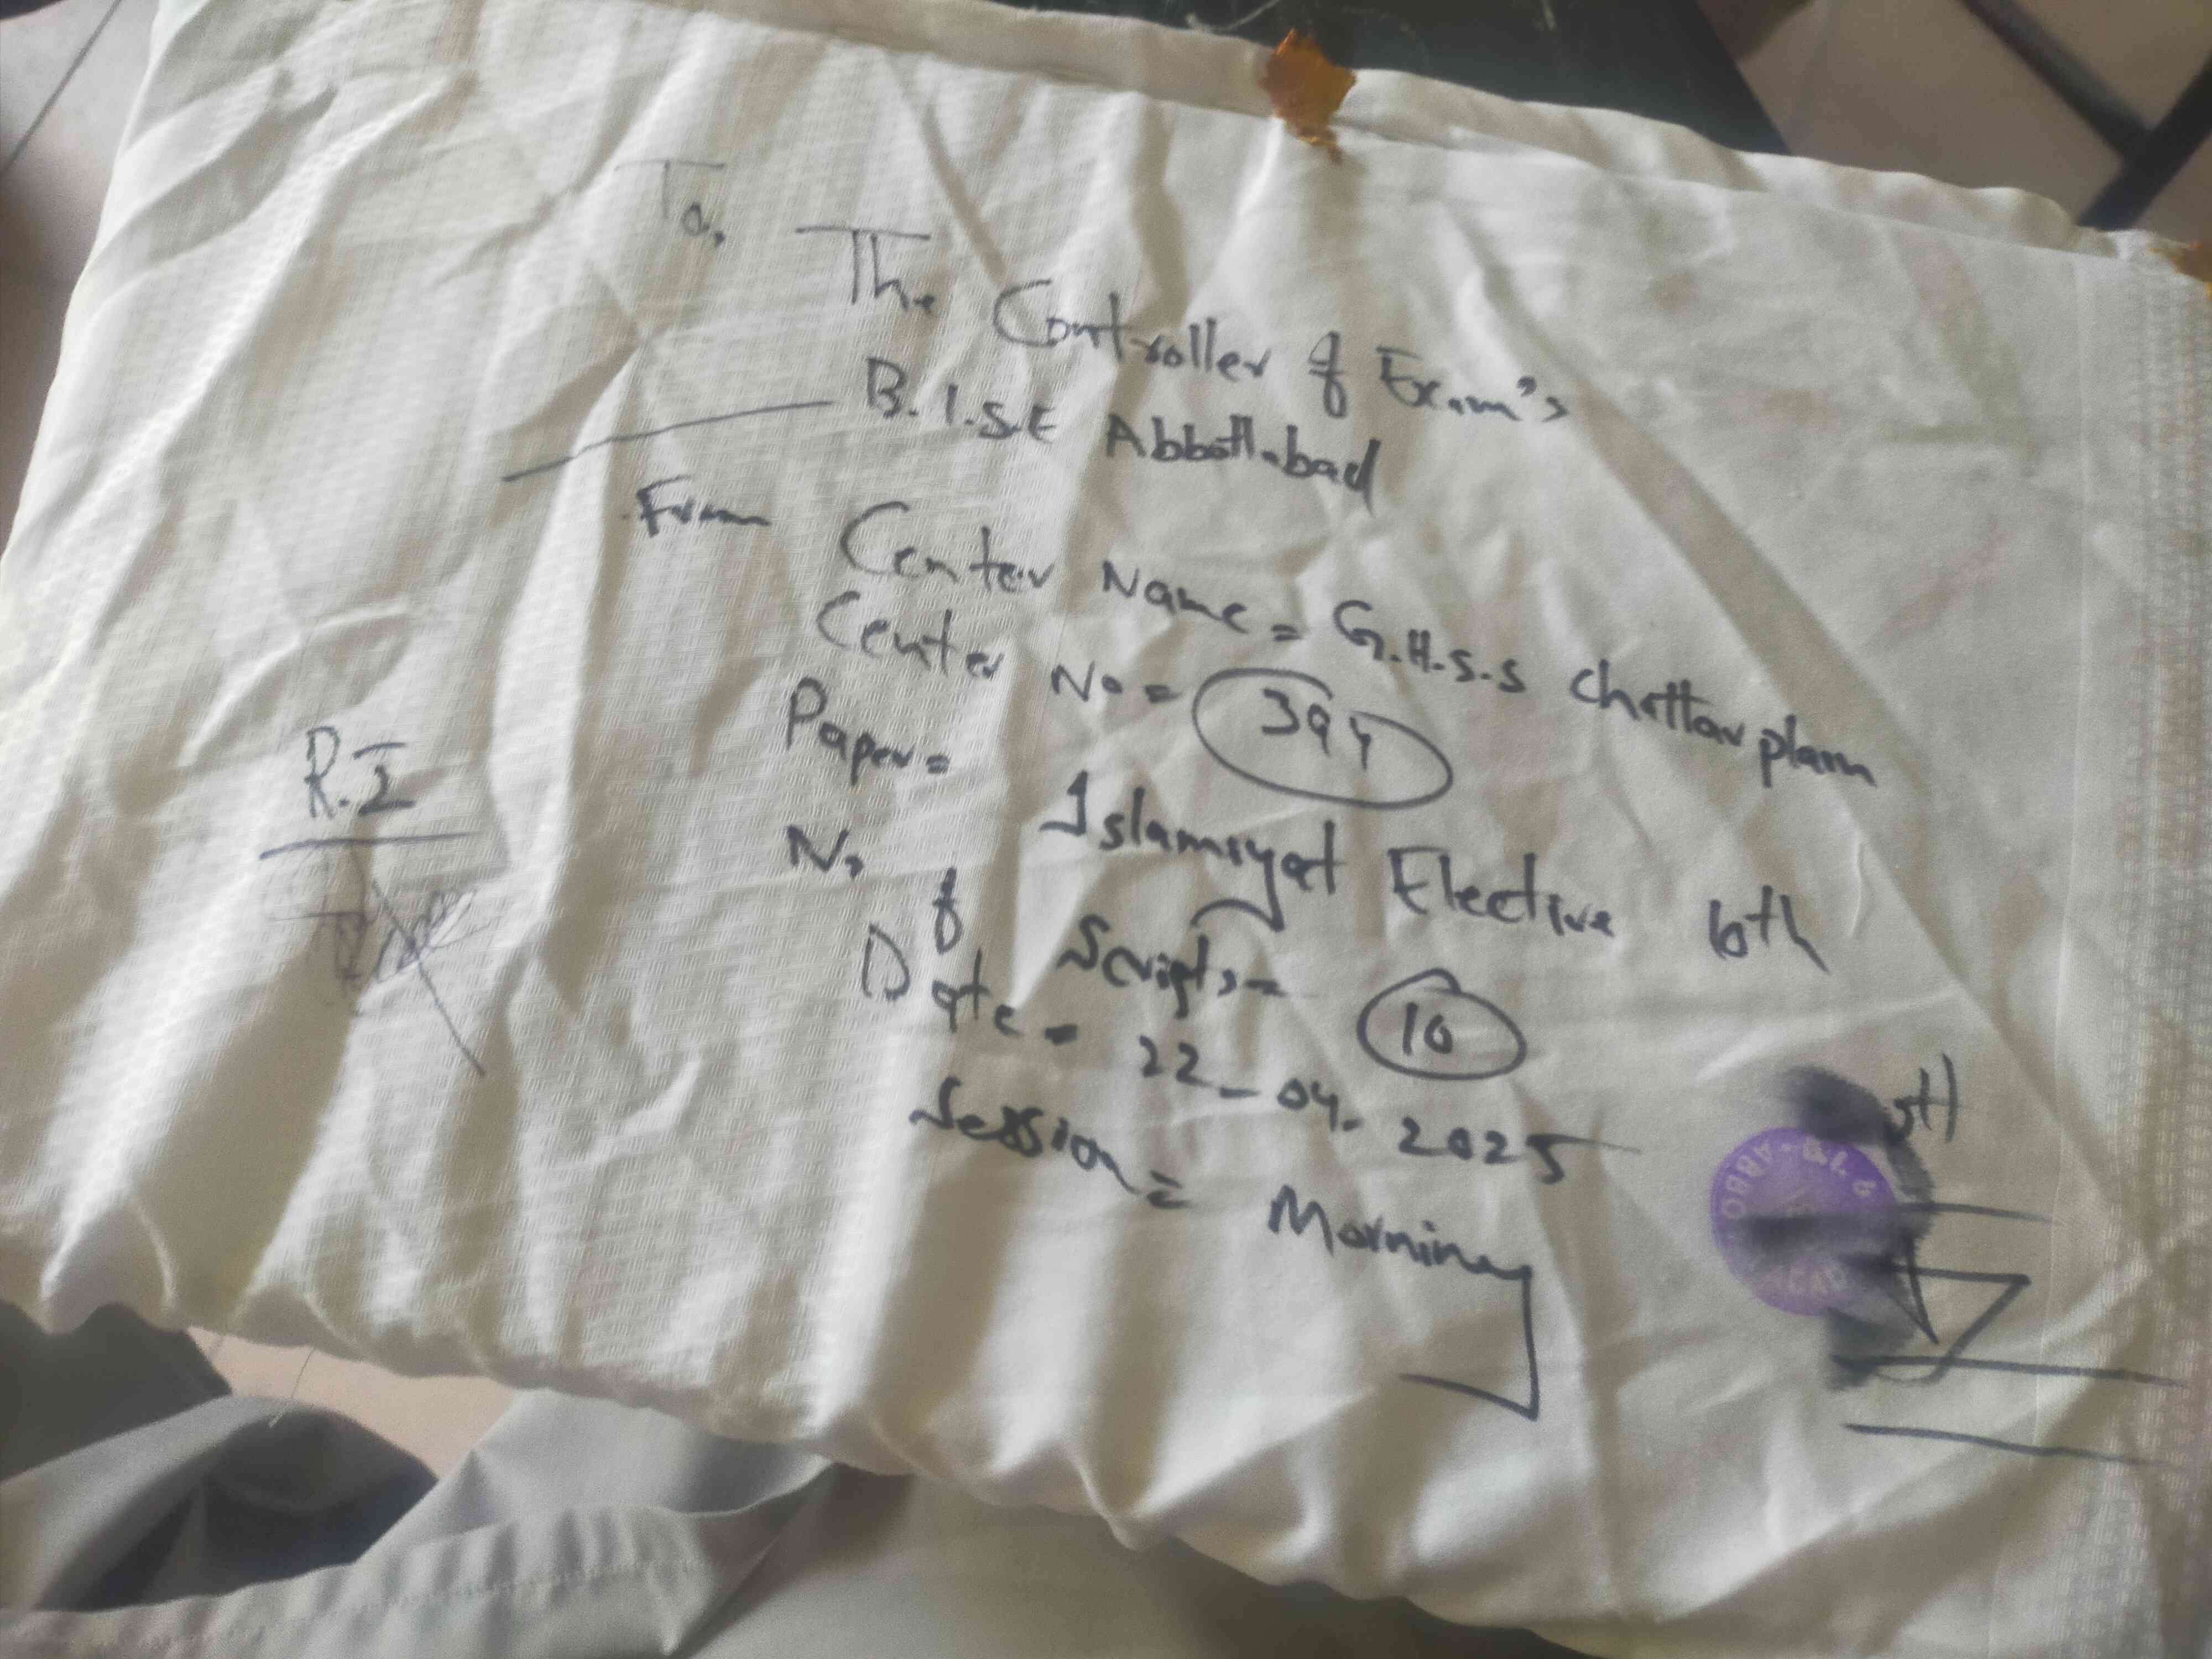 To,
The Controller of Exam's
B.I.S.E Abbottabad
From
Center Name = G.H.S.S Chattar plain
Center No = 394
Paper = Islamiyat Elective 10th
No of Scripts = 10
Date = 22-04-2025
Session = Morning
R.I